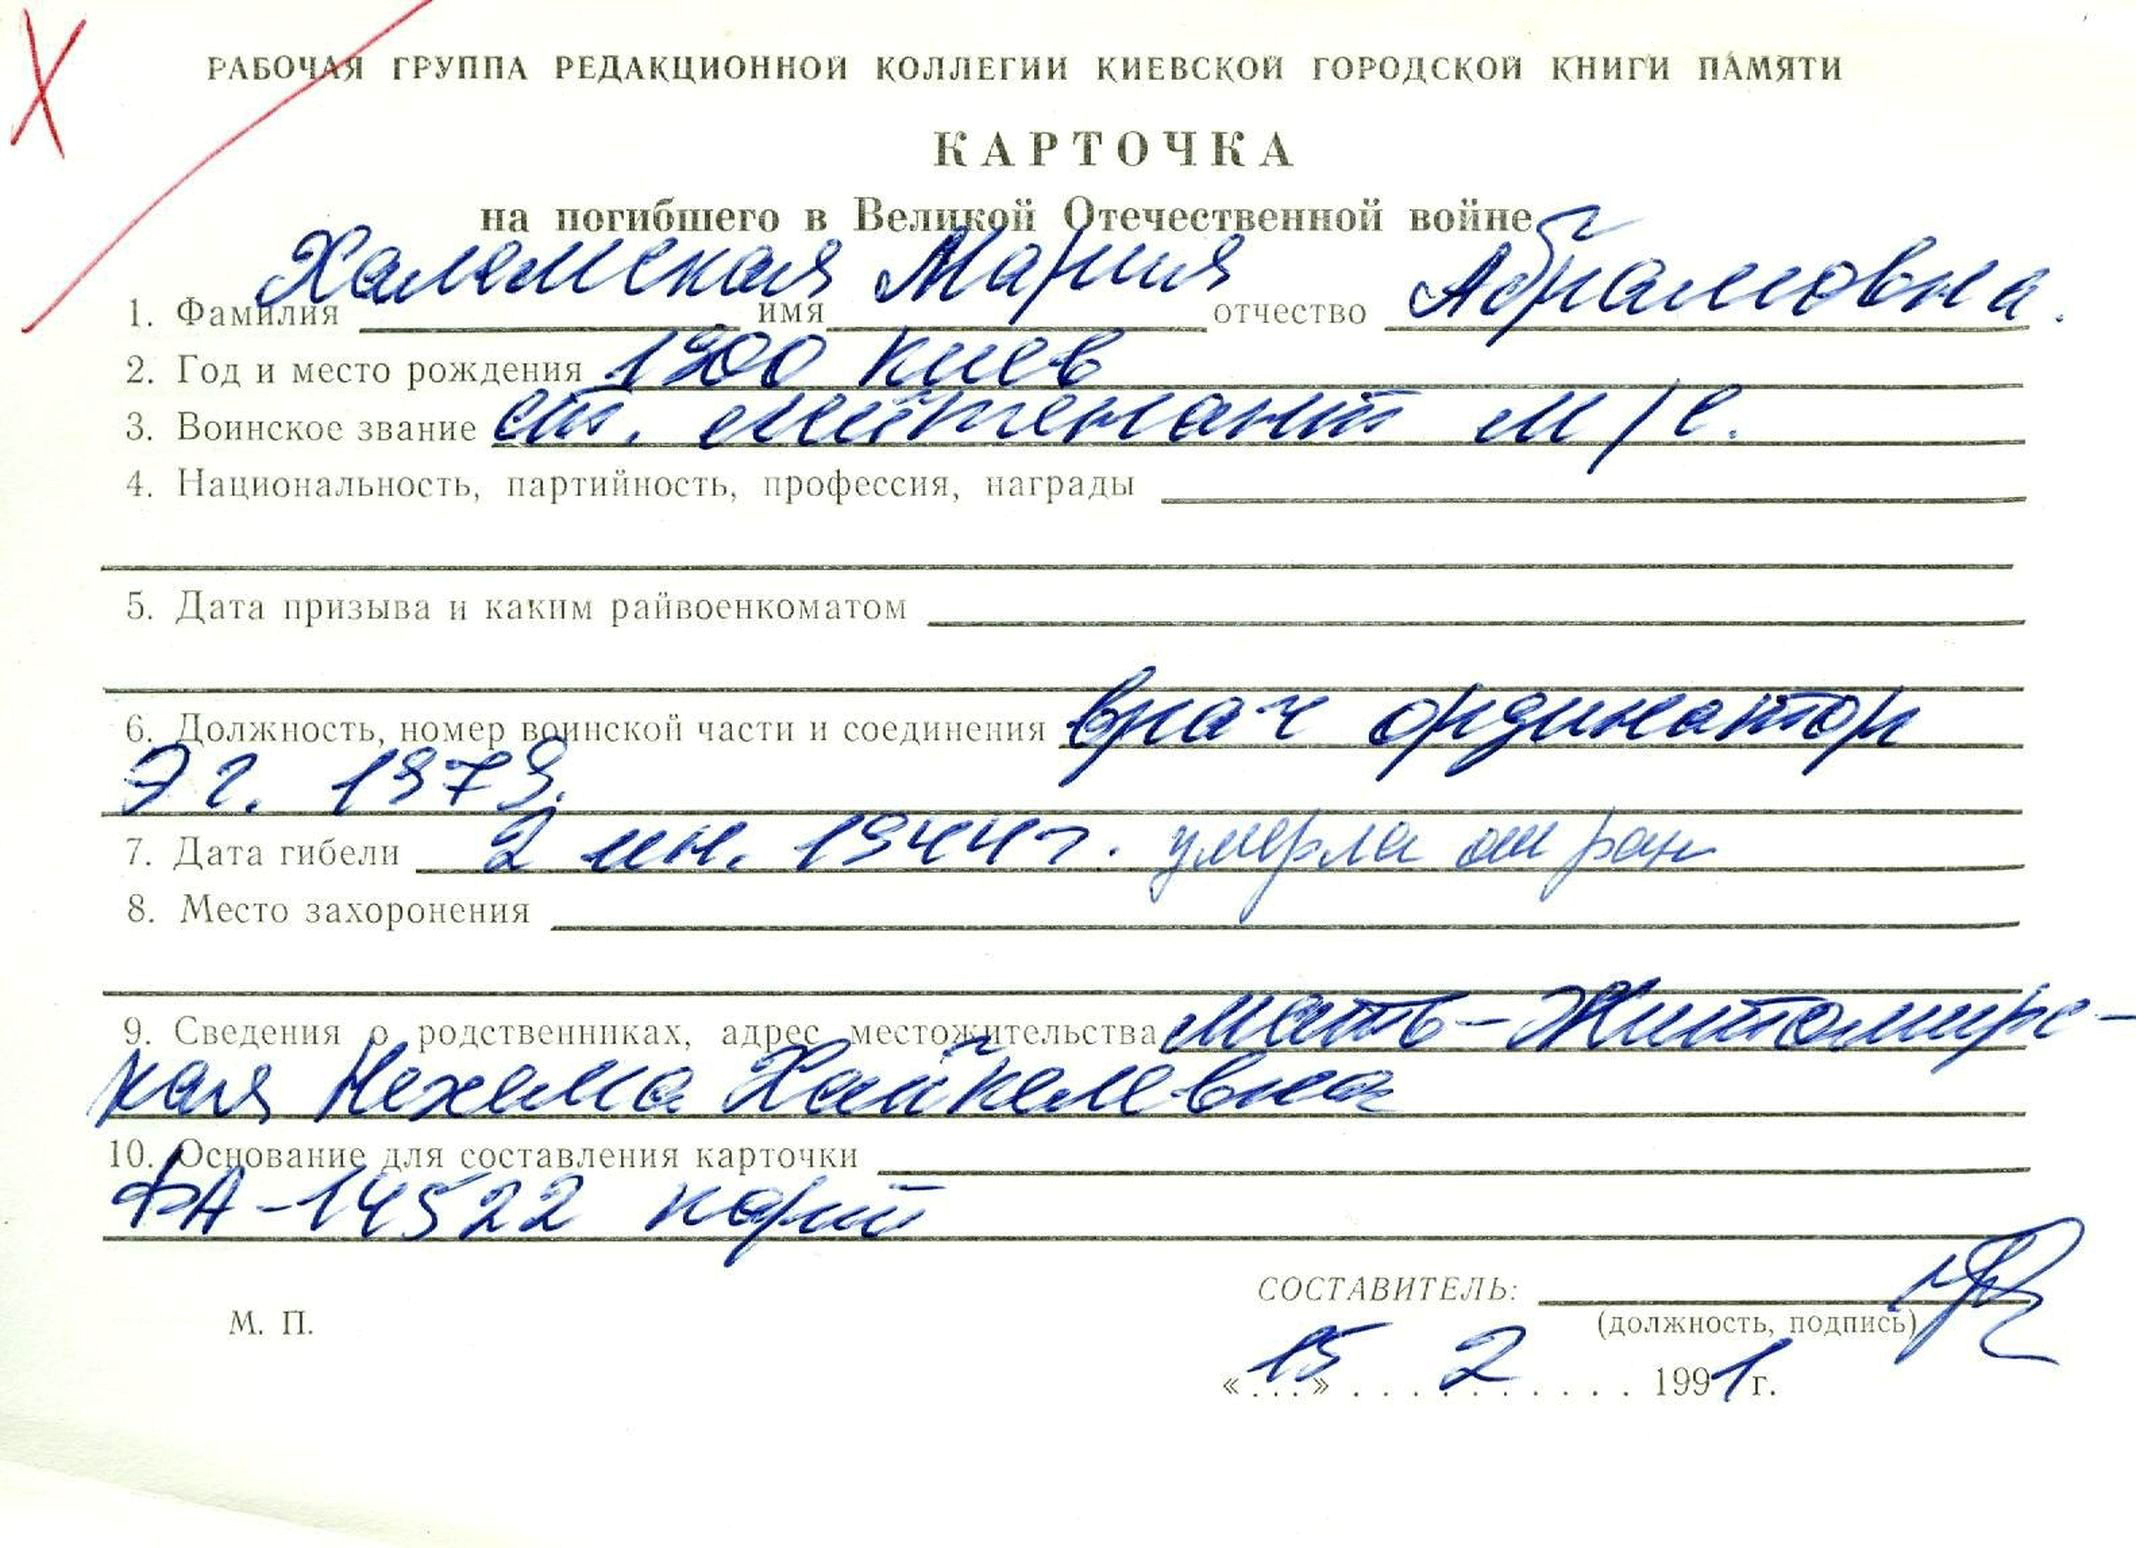 РАБОЧАЯ ГРУППА РЕДАКЦИОННОЙ КОЛЛЕГИИ КИЕВСКОЙ ГОРОДСКОЙ КНИГИ ПАМЯТИ
КАРТОЧКА
на погибшего в Великой Отечественной войне
1. Фамилия Халемская имя Мария отчество Абрамовна.
2. Год и место рождения 1900 Киев
3. Воинское звание ст. лейтенант м/с.
4. Национальность, партийность, профессия, награды
5. Дата призыва и каким райвоенкоматом
6. Должность, номер воинской части и соединения врач ординатор
ЭГ. 1979.
7. Дата гибели 2 ин. 1944 г. умерла от ран
8. Место захоронения
9. Сведения о родственниках, адрес местожительства мать - Житомирс-
кая Нехема Хайкелевна
10. Основание для составления карточки
ФА-14522 карт
СОСТАВИТЕЛЬ:
М. П.
(должность, подпись)
«15» 2 1991 г.